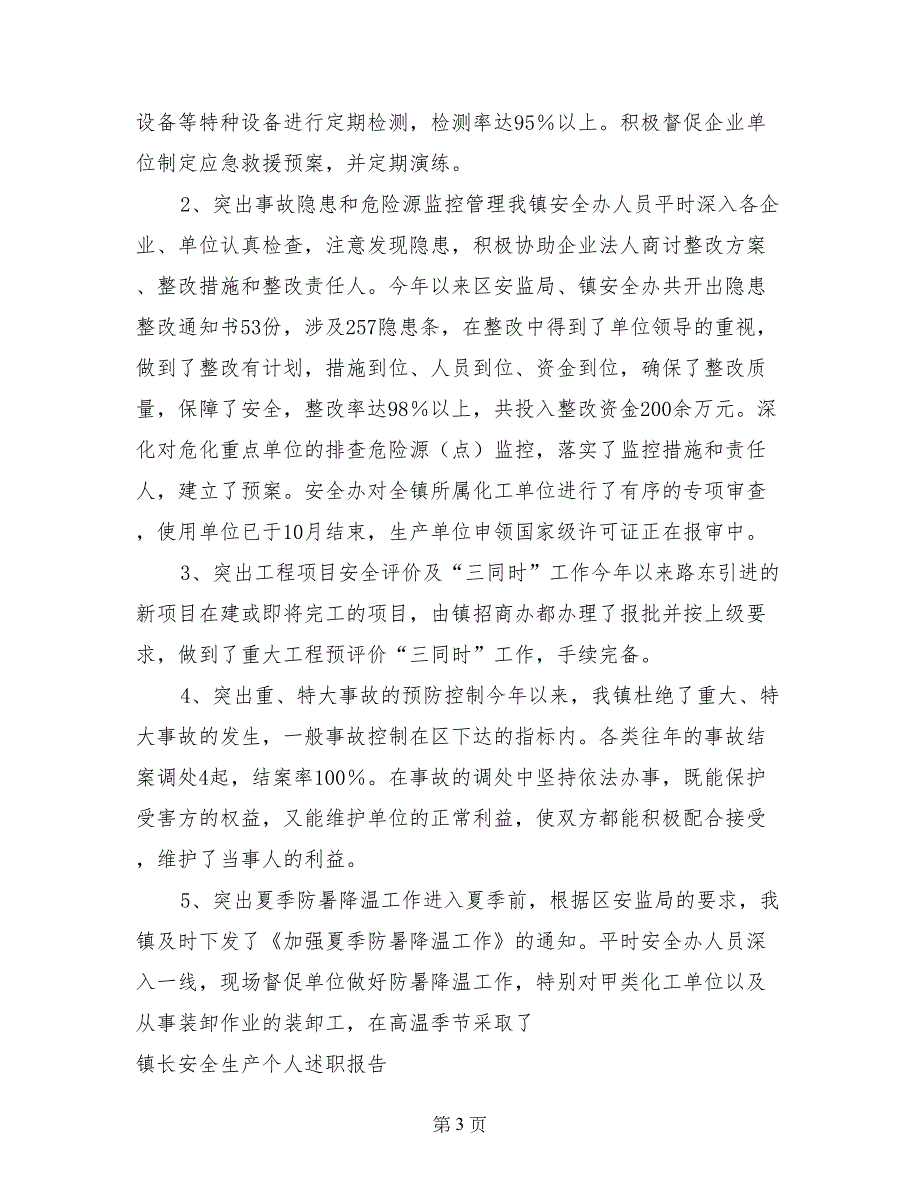 设备等特种设备进行定期检测，检测率达95％以上。积极督促企业单
位制定应急救援预案，并定期演练。
2、突出事故隐患和危险源监控管理我镇安全办人员平时深入各企
业、单位认真检查，注意发现隐患，积极协助企业法人商讨整改方案
、整改措施和整改责任人。今年以来区安监局、镇安全办共开出隐患
整改通知书53份，涉及257隐患条，在整改中得到了单位领导的重视，
做到了整改有计划，措施到位、人员到位、资金到位，确保了整改质
量，保障了安全，整改率达98％以上，共投入整改资金200余万元。深
化对危化重点单位的排查危险源（点）监控，落实了监控措施和责任
人，建立了预案。安全办对全镇所属化工单位进行了有序的专项审查
，使用单位已于10月结束，生产单位申领国家级许可证正在报审中。
3、突出工程项目安全评价及“三同时”工作今年以来路东引进的
新项目在建或即将完工的项目，由镇招商办都办理了报批并按上级要
求，做到了重大工程预评价“三同时”工作，手续完备。
4、突出重、特大事故的预防控制今年以来，我镇杜绝了重大、特
大事故的发生，一般事故控制在区下达的指标内。各类往年的事故结
案调处4起，结案率100％。在事故的调处中坚持依法办事，既能保护
受害方的权益，又能维护单位的正常利益，使双方都能积极配合接受
，维护了当事人的利益。
5、突出夏季防暑降温工作进入夏季前，根据区安监局的要求，我
镇及时下发了《加强夏季防暑降温工作》的通知。平时安全办人员深
入一线，现场督促单位做好防暑降温工作，特别对甲类化工单位以及
从事装卸作业的装卸工，在高温季节采取了
镇长安全生产个人述职报告
第 3 页